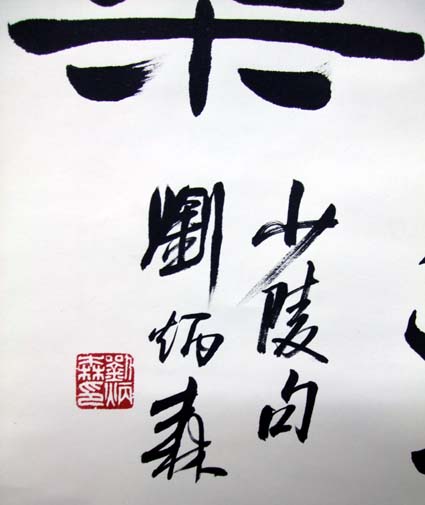 少陵句
劉炳森
劉炳森印